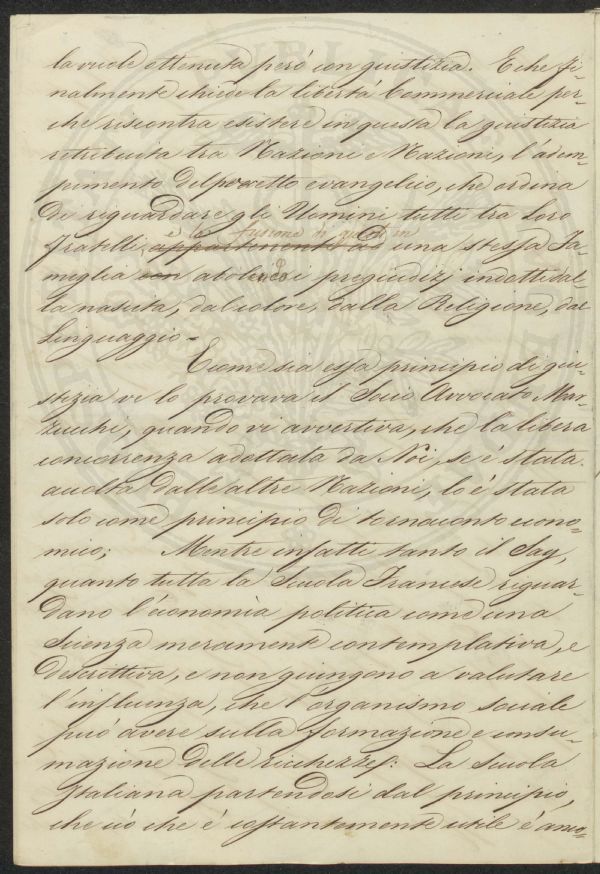 la vuole ottenuta però con giustizia. E che fi-
nalmente chiede la libertà Commerciale per-
che riscontra esistere in questa la giustizia
retribuita tra Nazioni e Nazioni, l'adem-
pimento del precetto evangelico, che ordina
di riguardare gli Uomini tutti tra loro
e la fusione di questi in
fratelli, appartenenti ad una stessa Fa-
miglia con abolendo i pregiudizj indotti dal-
la nascita, dal colore, dalla Religione, dal
Linguaggio -
E come sia essa principio di giu-
stizia ve lo provava il Socio Avvocato Mar-
zucchi, quando vi avvertiva, che la libera
concorrenza adottata da Noi, se è stata
accolta dalle altre Nazioni, lo è stata
solo come principio di tornaconto econo-
mico; Mentre infatti tanto il Say,
quanto tutta la Scuola Francese riguar-
dano l'economia politica come una
Scienza meramente contemplativa, e
descrittiva, e non giungono a valutare
l'influenza, che l'organismo sociale
può avere sulla formazione e consu-
mazione delle ricchezze: La Scuola
Italiana partendosi dal principio,
che ciò che è costantemente utile è anco-